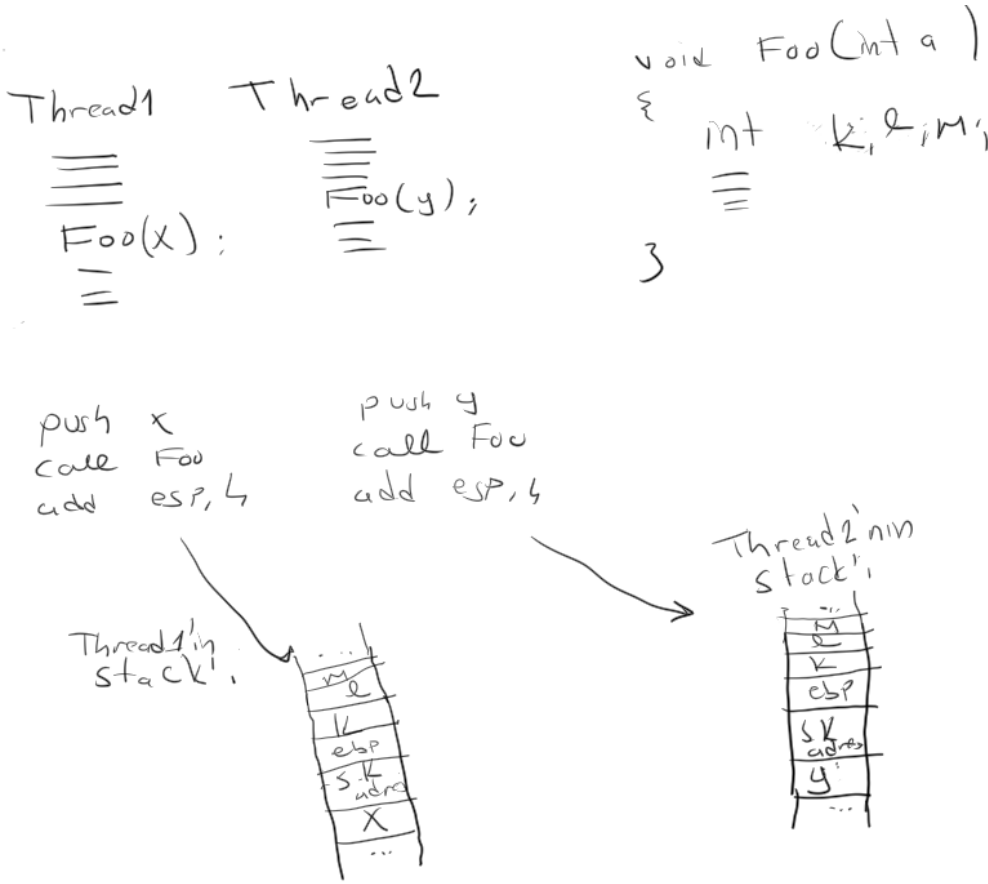 Thread1
Foo(x);
Thread2
Foo(y);
void Foo(int a)
{
int k, l, m;
}
push x
call Foo
add esp, 4
push y
call Foo
add esp, 4
Thread1'in
stack'ı
...
m
l
k
ebp
s.k
adres
x
...
Thread2'nin
stack'ı
...
m
l
k
ebp
s k
adres
y
...